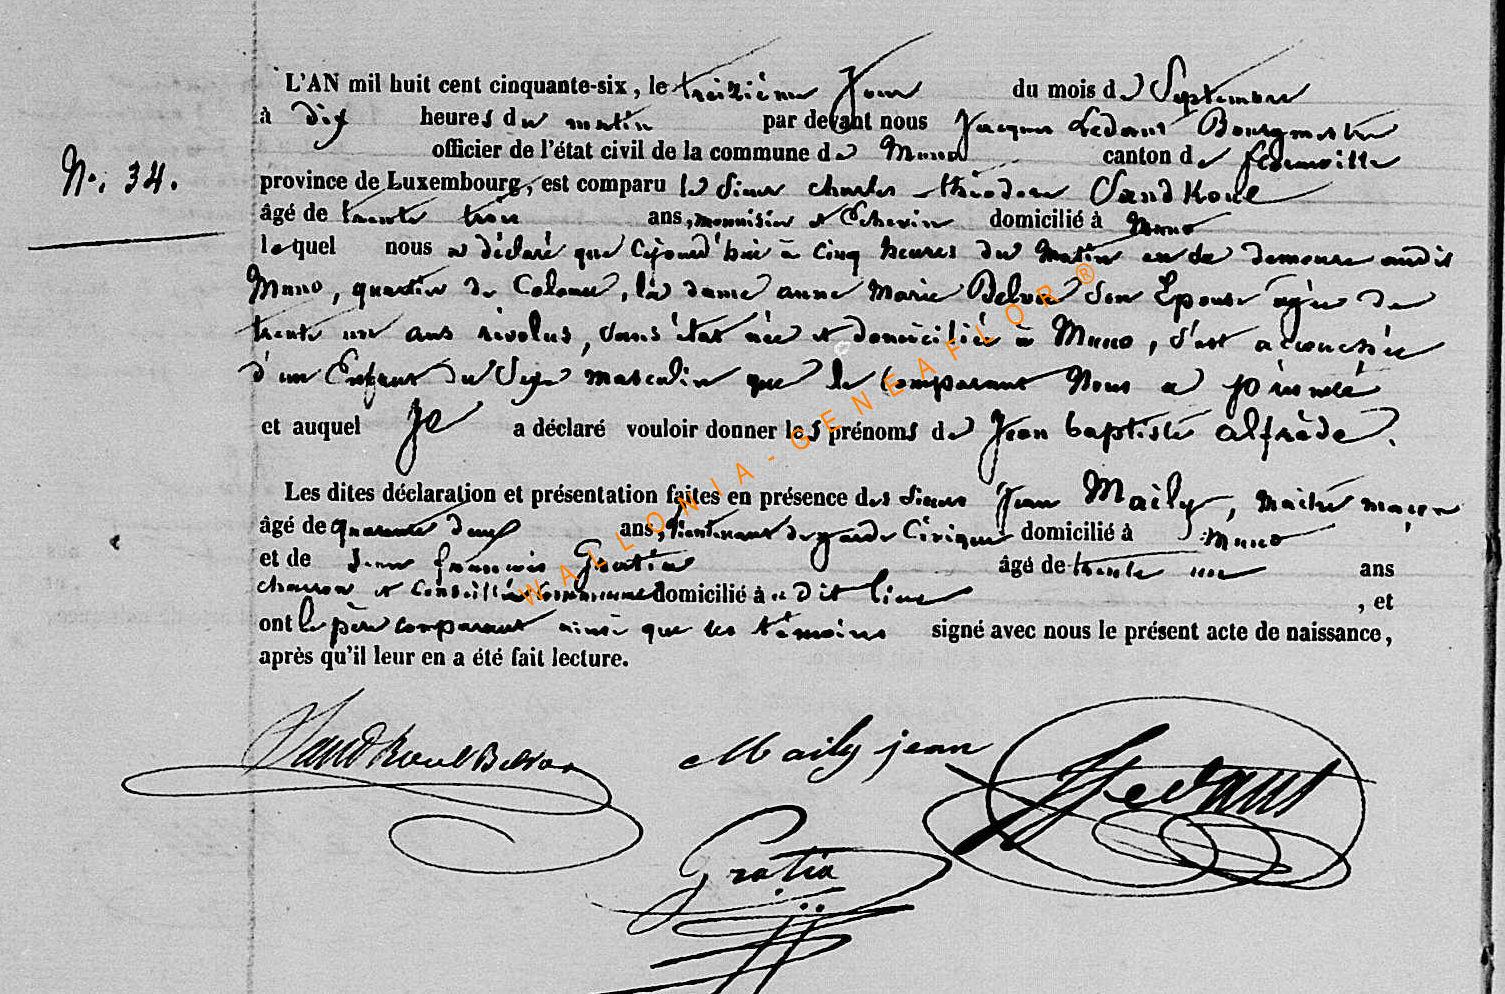 L'AN mil huit cent cinquante-six, le treizième Jour du mois de Septembre
à dix heures du matin par devant nous Jacques Ledant Bourgmestre
officier de l'état civil de la commune de Muno canton de florenville
N°. 34.
province de Luxembourg, est comparu le Sieur Charles théodore Vandkoul
âgé de trente trois ans, menuisier et Echevin domicilié à Muno
lequel nous a déclaré que Cejourd'hui à Cinq heures du Matin en sa demeure audit
Muno, quartier de , la dame anne Marie Belva Son Epouse âgée de
trente un ans révolus, sans état née et domiciliée à Muno, s'est accouchée
d'un Enfant du Sexe masculin que le Comparant Nous a présenté
et auquel Je a déclaré vouloir donner les prénoms de Jean baptiste alfrède.
Les dites déclaration et présentation faites en présence des sieurs Jean Maily, maître maçon
âgé de quarante deux ans, Lieutenant de garde Civique domicilié à Muno
et de Jean françois Gratia âgé de trente un ans
charron et Conseiller Communal domicilié à u dit lieu , et
ont le père comparant ainsi que les témoins signé avec nous le présent acte de naissance,
après qu'il leur en a été fait lecture.
VandKoul Belva Maily jean JLedant
Gratia
WALLONIA-GENEAFLOR®